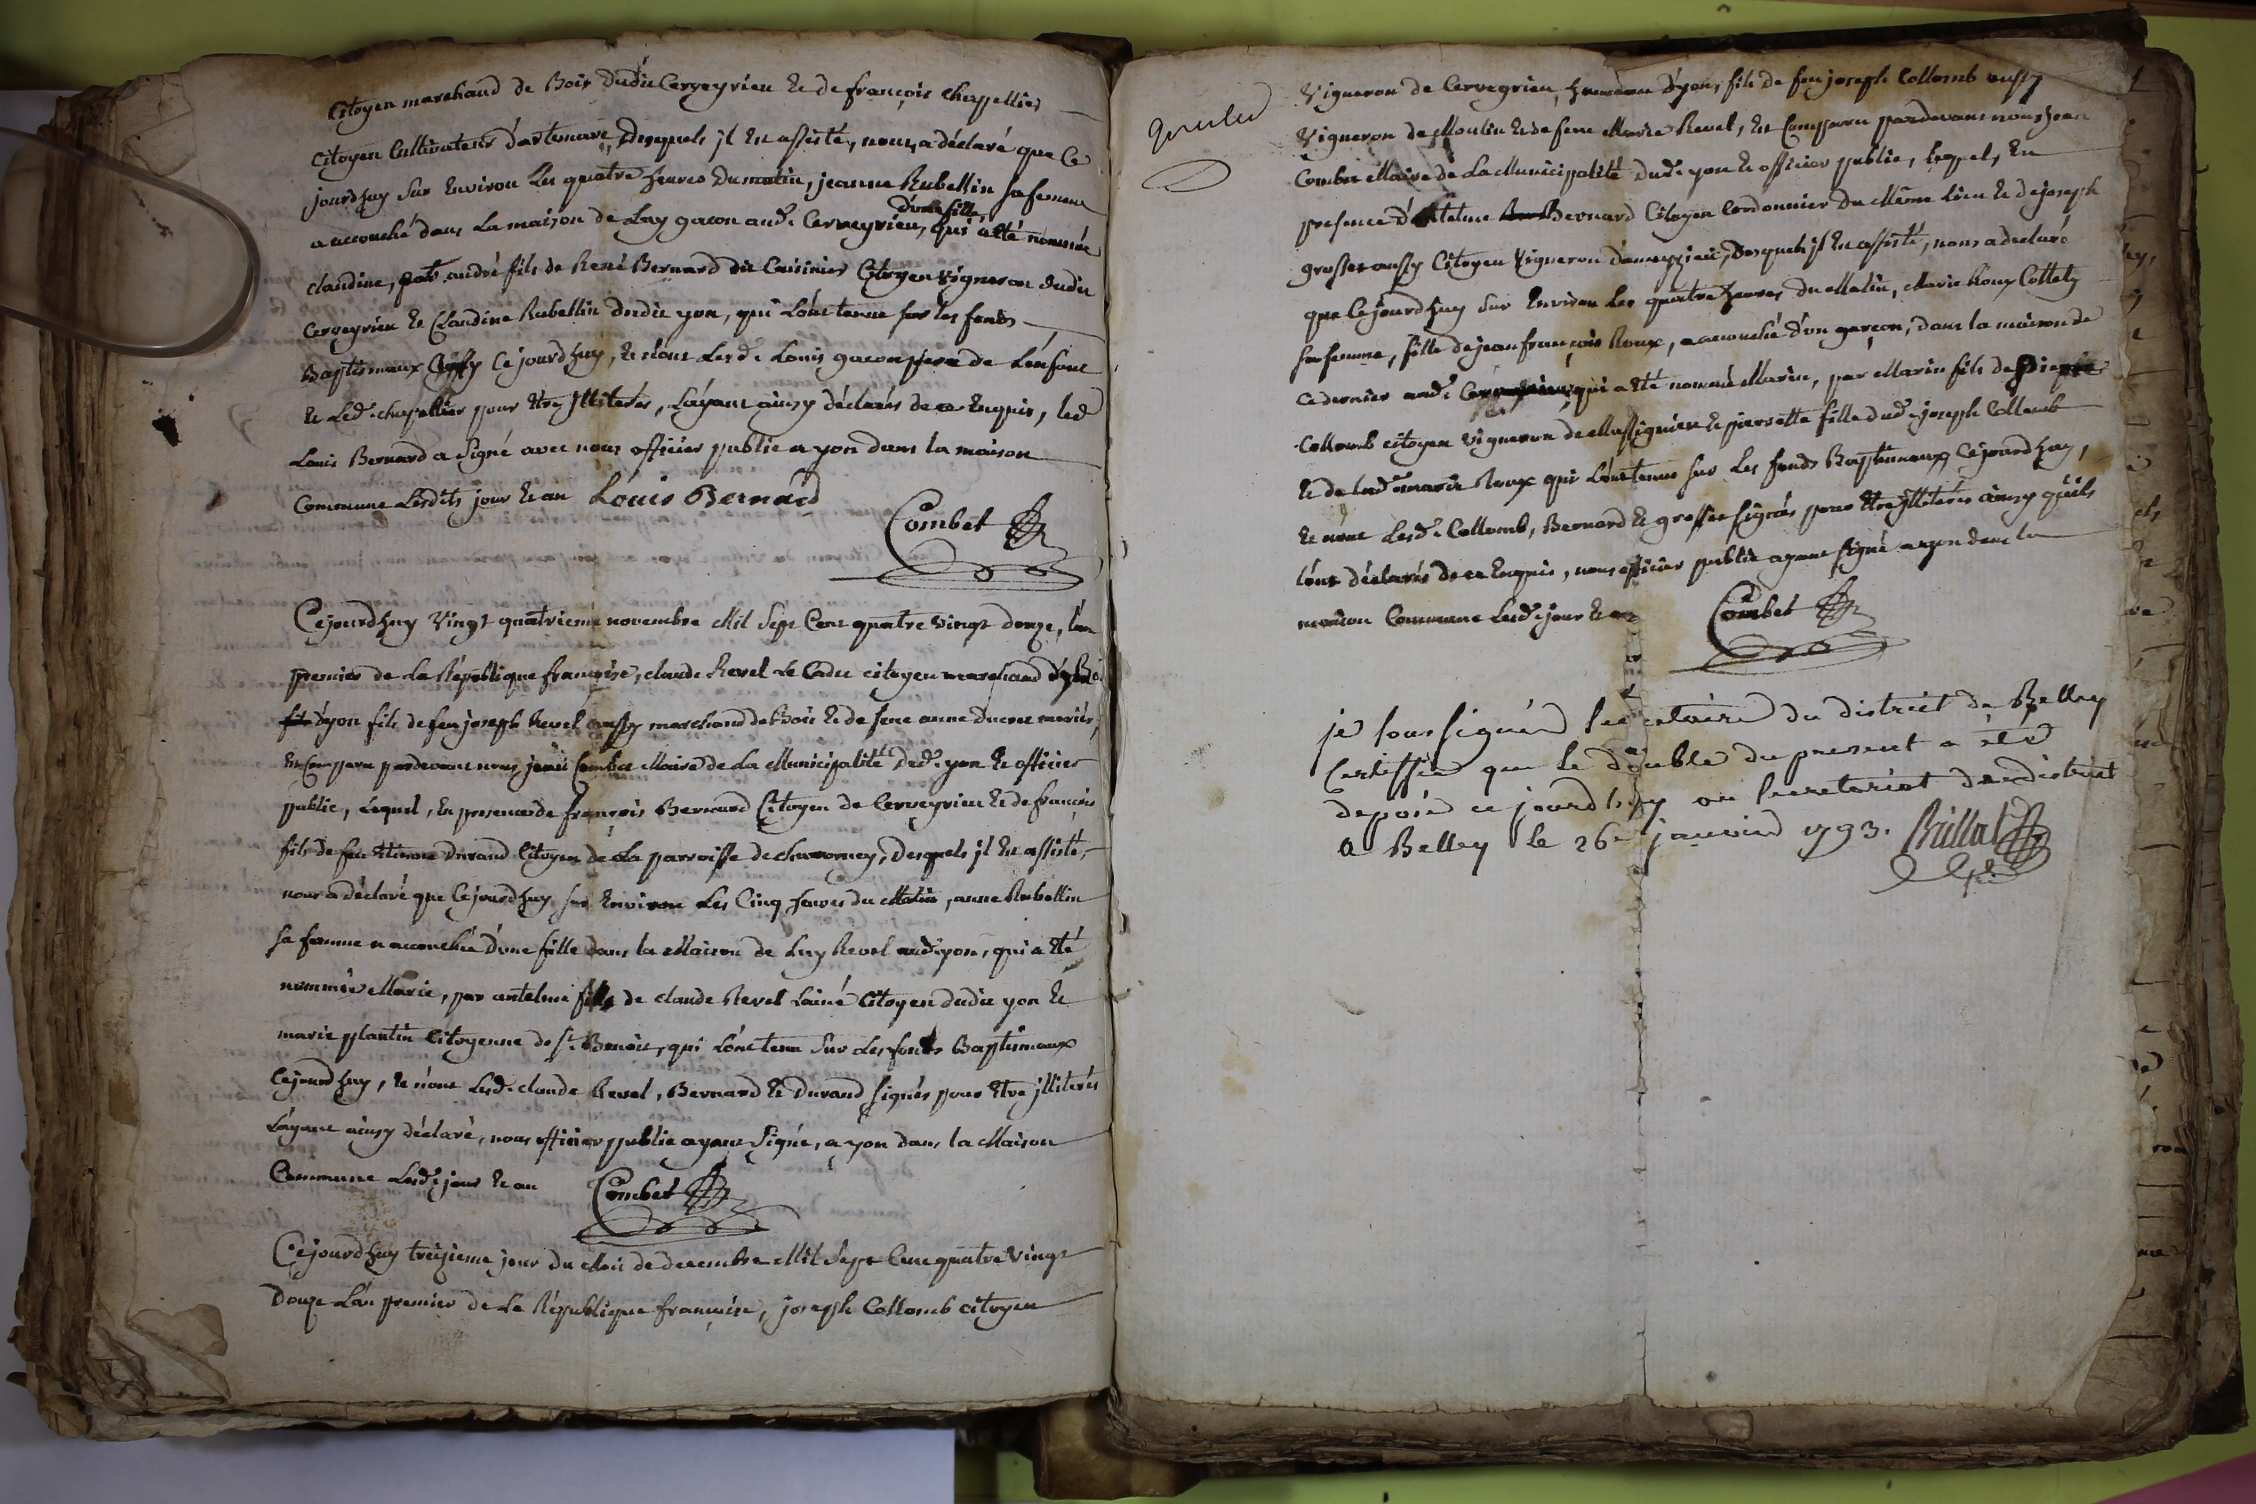 Citoyen marchand de Bois dudit Cerveyrieu et de françois Chapellier
Citoyen Cultivateur d'artemare, desquels jl Est assisté, nous a déclaré que Ce
jourd'huy sur Environ Les quatre heures du matin, jeanne Rubellin sa femme
d'une fille,
a accouché dans La maison de Luy gacon aud. Cerveyrieu, qui a été nommée
claudine, par andré fils de René Bernard dit Cuisinier Citoyen Vigneron dudit
Cerveyrieu et Claudine Rubellin dudit yon, qui L'ont tenue sur les fonds
Baptismaux Cejourd'huy, et n'ont Lesd. Louis gacon pere de L'enfant
et Led. chapellier pour être jlliterés, L'ayant ainsy déclarés de ce Enquis, led
Louis Bernard a signé avec nous officier public a yon dans la maison
Commune Lesdits jour et an Louis Bernard
Combet
Cejourd'huy Vingt quatrieme novembre Mil Sept Cent quatre Vingt douze, l'an
premier de La République françoise, claude Revel Le Cadet citoyen marchand de Bois
d'yon fils de feu joseph Revel aussy marchand de Bois et de feue anne
Est Comparu pardevant nous Combet Maire de La Municipalité dud. yon et officier
public, Lequel, En presence de françois Bernard Citoyen de Cerveyrieu et de françois
fils de feu Etienne Durand Citoyen de La parroisse de chavornay, Desquels jl Est assisté,
nous a déclaré que Cejourd'huy sur Environ Les Cinq heures du Matin, anne Rubellin
sa femme a accouchée d'une fille dans la Maison de Luy Revel aud. yon, qui a été
nommée Marie, par antelme fils de claude Revel L'ainé Citoyen dudit yon et
marie plantin Citoyenne de St. Benoit, qui L'ont tenu Sur Les fonds Baptismaux
Cejourd'huy, et n'ont Lesd. claude Revel, Bernard et Durand signés pour être jlliterés
L'ayant ainsy déclaré, nous officier public ayant Signé, a yon dans la Maison
Commune Lesd. jour et an Combet
Cejourd'huy treizieme jour du Mois de decembre Mil Sept Cent quatre Vingt
Douze L'an premier de La République françoise, joseph Collomb citoyen
Vigneron de Cerveyrieu, hameau d'yon, fils de feu joseph Collomb aussy
Vigneron de Moulin et de feue Marie Revel, Est Comparu pardevant nous jean
Combet Maire de La Municipalité dud. yon et officier public, lequel, En
presence d'antelme Bernard Citoyen Cordonnier du Même Lieu et de joseph
grosset aussy Citoyen Vigneron d'ameyzieu, Desquels jl Est assisté, nous a declaré
que Cejourd'huy sur Environ Les quatre heures du Matin, Marie Roux Collet
sa femme, fille de jean françois Roux, a accouché d'un garçon, dans la maison de
ce dernier aud. qui a été nommé Marin, par Marin fils de
Collomb citoyen Vigneron de Massignieu et pierrette fille dud. joseph Collomb
et de lad. marie Roux qui L'ont tenus sur Les fonds Baptismaux Cejourd'huy,
et n'ont Lesd. Collomb, Bernard et grosset signés pour être jlliterés ainsy qu'ils
L'ont déclarés de ce Enquis, nous officier public ayant signé a yon dans la
maison Commune Lesd. jour et an Combet
je soussigné secretaire du district de Belley
Certiffie que le double du present a été
deposé ce jourd'huy au secretariat du district
a Belley le 26e janvier 1793. Brillat